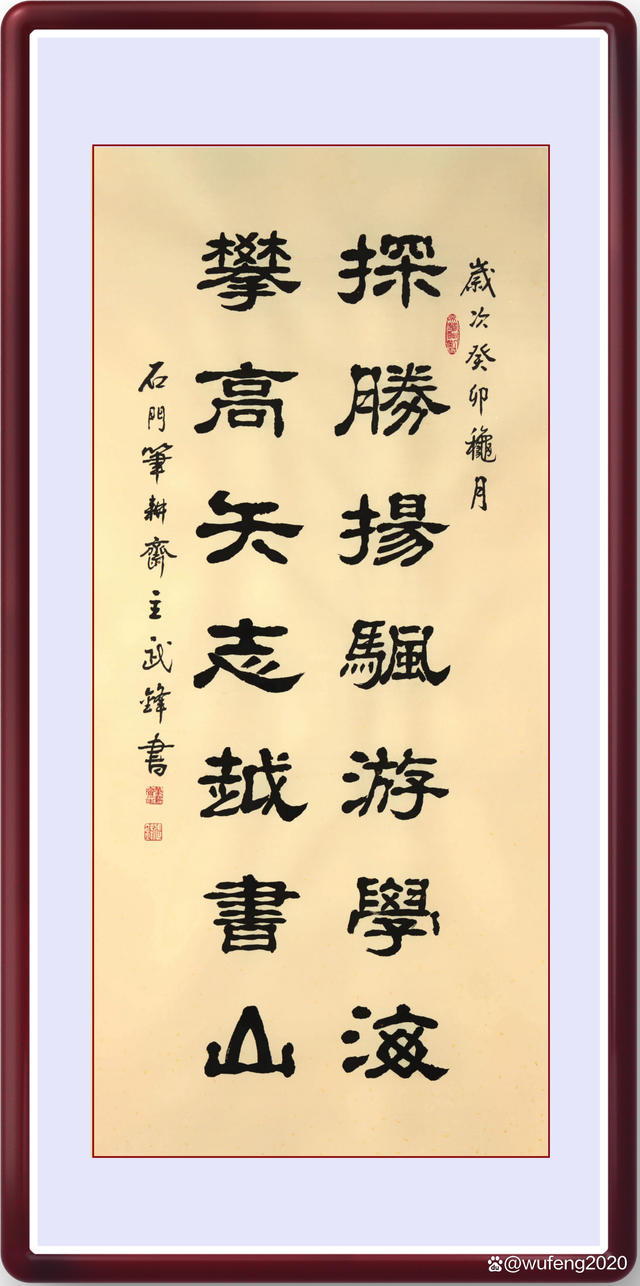 歲次癸卯穐月
探勝揚颿游學海
攀高矢志越書山
石門筆耕齋主武鋒書
@wufeng2020